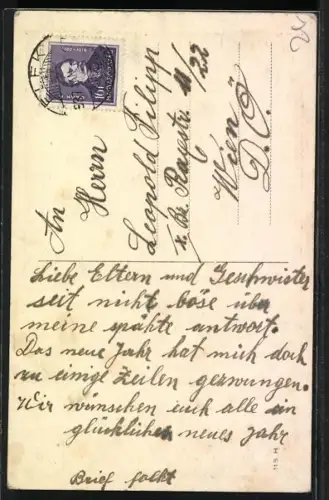 An
Herrn
Leopold Filipp
X. Bz. Raystr. 11/22
6
Wien
D. Ö.
Liebe Eltern und Geschwister
seit nicht böse über
meine spähte antwort.
Das neue Jahr hat mich doch
zu einige Zeilen gezwungen.
Wir wünschen euch alle ein
glückliches neues Jahr
Brief folkt